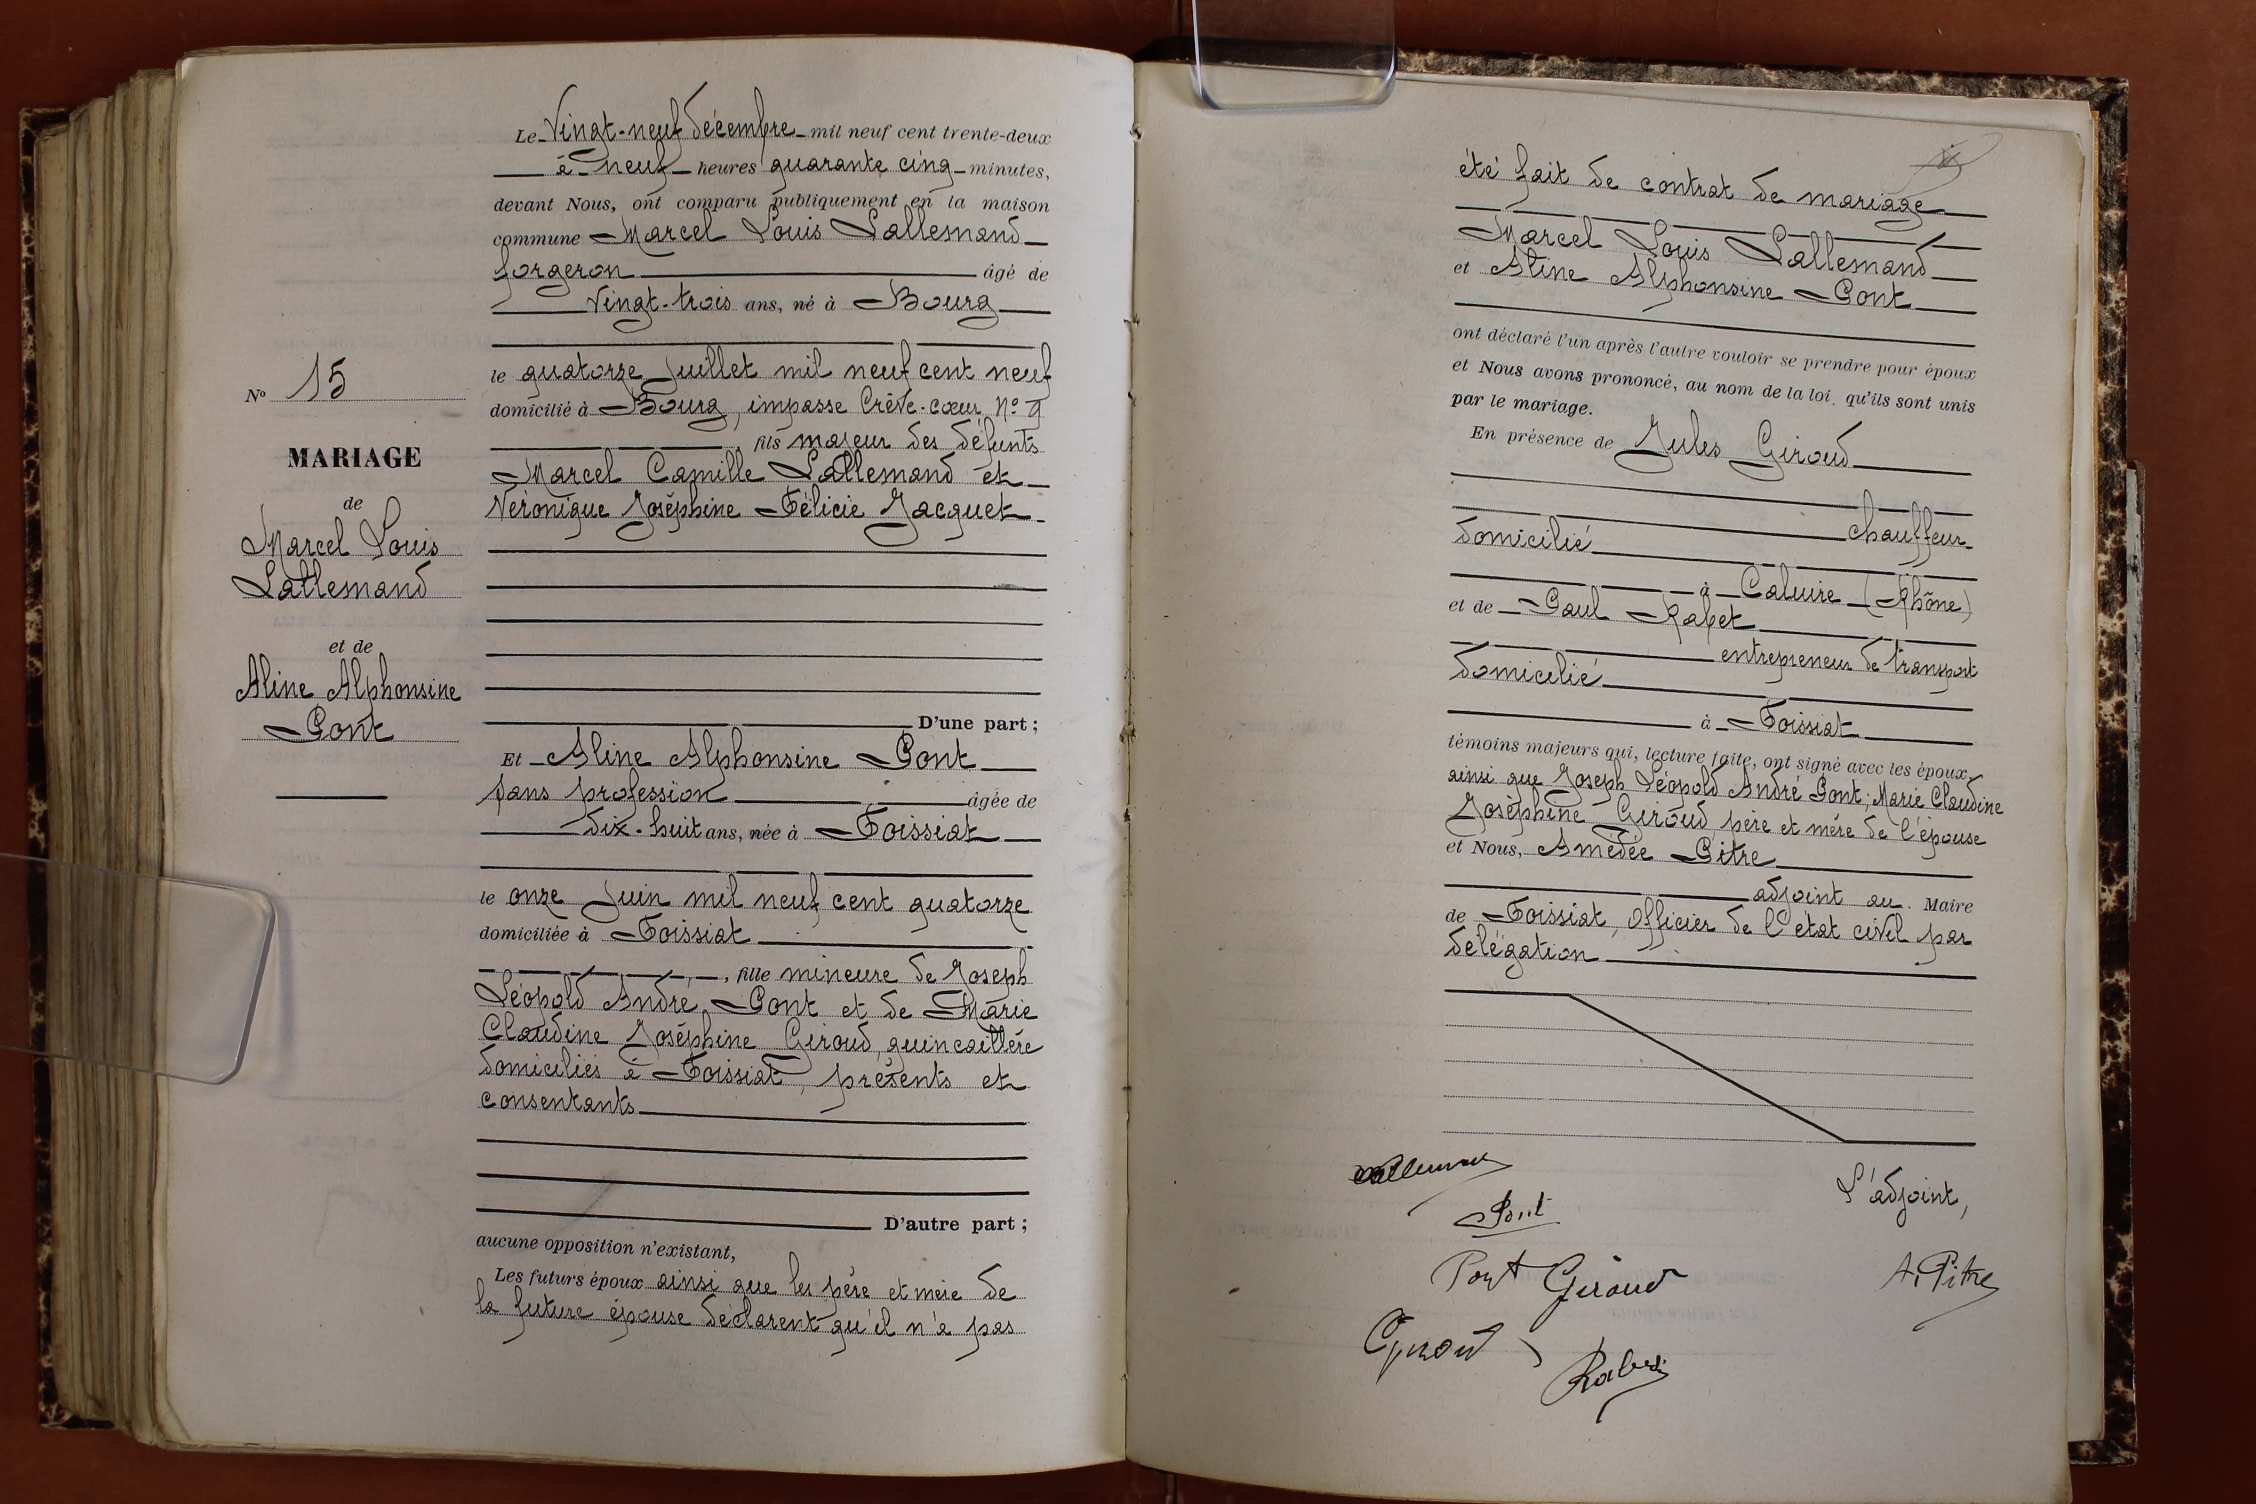 Le Vingt-neuf décembre mil neuf cent trente-deux
à neuf heures quarante cinq minutes,
devant Nous, ont comparu publiquement en la maison
commune Marcel Louis Lallemand
forgeron âgé de
vingt-trois ans, né à Bourg
le quatorze juillet mil neuf cent neuf
domicilié à Bourg, impasse Crève-cœur, N° 9
, fils majeur des défunts
Marcel Camille Lallemand et
Véronique Joséphine Félicie Jacquet
D'une part ;
Et Aline Alphonsine Pont
sans profession âgée de
dix-huit ans, née à Foissiat
le onze juin mil neuf cent quatorze
domiciliée à Foissiat
, fille mineure de Joseph
Léopold André Pont et de Marie
Claudine Joséphine Giroud, quincaillère
domiciliés à Foissiat, présents et
consentants
D'autre part ;
aucune opposition n'existant,
Les futurs époux ainsi que les père et mère de
la future épouse déclarent qu'il n'a pas
N° 15
MARIAGE
de
Marcel Louis
Lallemand
et de
Aline Alphonsine
Pont
été fait de contrat de mariage
Marcel Louis Lallemand
et Aline Alphonsine Pont
ont déclaré l'un après l'autre vouloir se prendre pour époux
et Nous avons prononcé, au nom de la loi, qu'ils sont unis
par le mariage.
En présence de Jules Giroud
chauffeur
domicilié
à Caluire (Rhône)
et de Paul Rabet
entrepreneur de transport
domicilié
à Foissiat
témoins majeurs qui, lecture faite, ont signé avec les époux
ainsi que Joseph Léopold André Pont; Marie Claudine
Joséphine Giroud père et mère de l'épouse
et Nous, Amédée Pitre
adjoint au Maire
de Foissiat, Officier de l'état civil par
délégation
Lallemand
L'adjoint,
Pont
Pont Giroud
A. Pitre
Giroud
Rabet